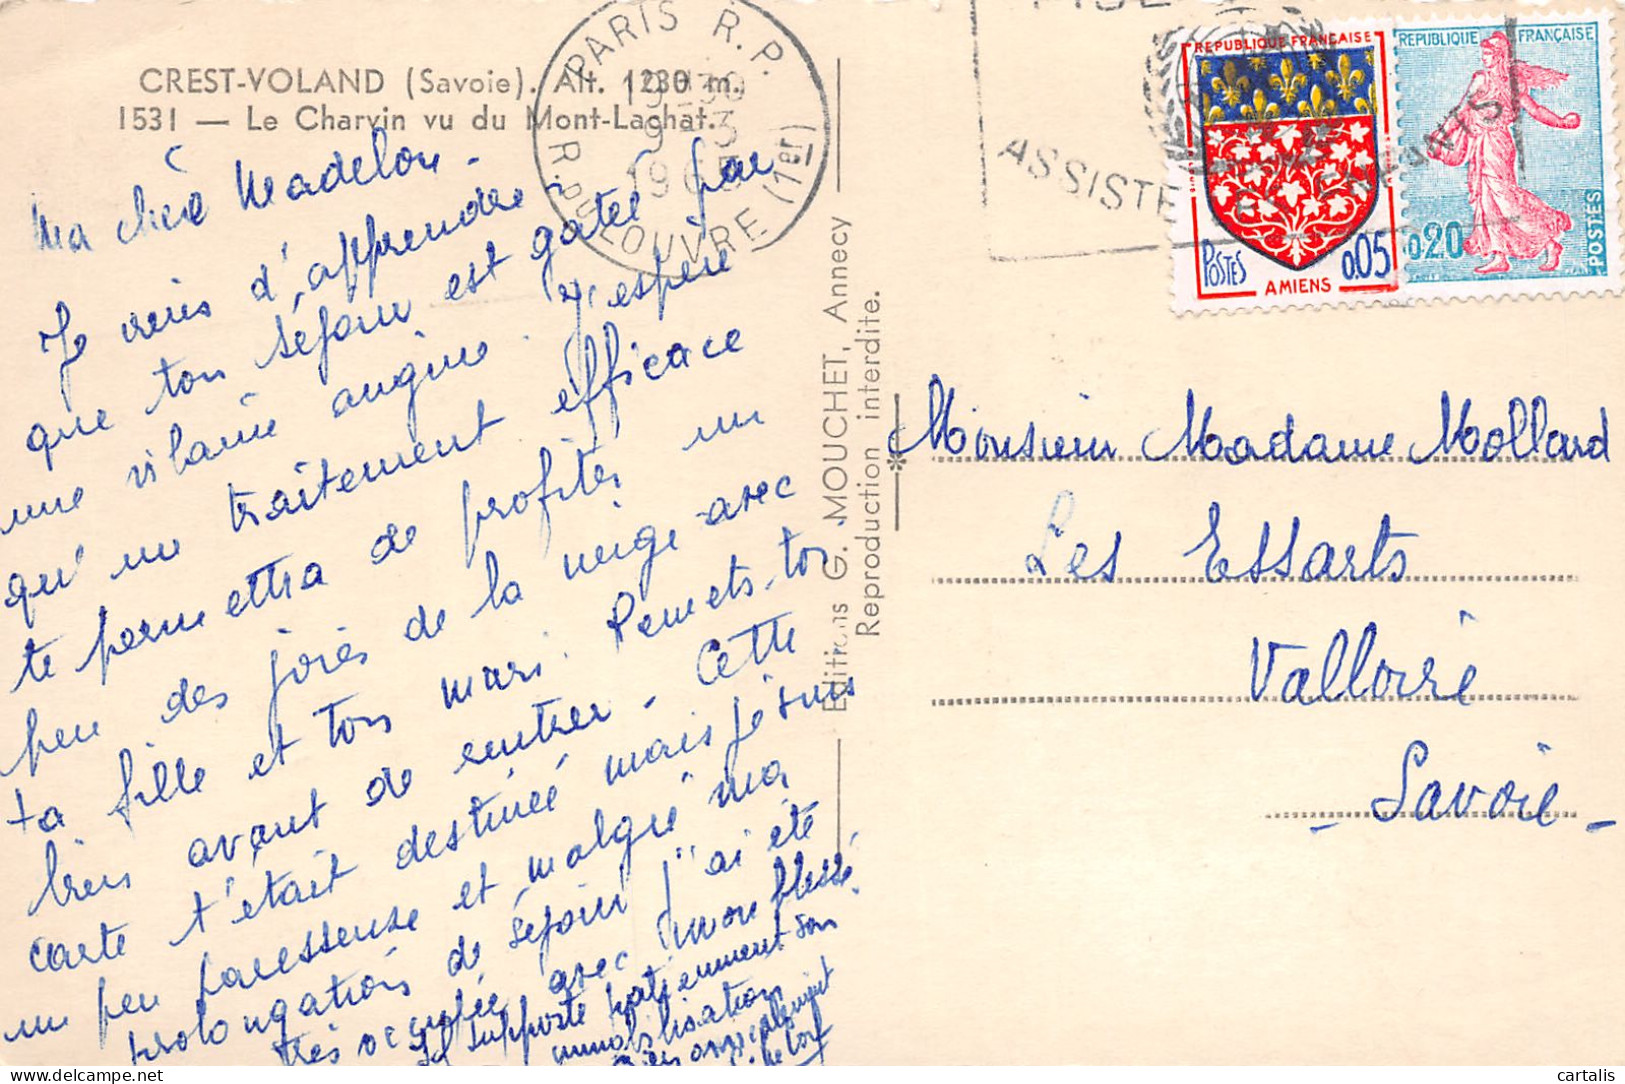 CREST-VOLAND (Savoie). Alt. 1230 m.
1531 — Le Charvin vu du Mont-Lachat.
Ma chère Madelon -
Je viens d'apprendre
que ton séjour est gâté par
une vilaine angine. J'espère
qu'un traitement efficace
te permettra de profiter un
peu des joies de la neige avec
ta fille et ton mari. Remets-toi
bien avant de rentrer - Cette
carte t'était destinée mais je suis
un peu paresseuse et malgré ma
prolongation de séjour j'ai été
très occupée avec mon blessé.
Il supporte patiemment son
immobilisation
Bien amicalement
PARIS R.P.
R. DU LOUVRE (1er)
Editions G. MOUCHET, Annecy
Reproduction interdite.
ASSISTE
REPUBLIQUE FRANÇAISE
POSTES 0,05
AMIENS
REPUBLIQUE FRANÇAISE
0,20
POSTES
Monsieur Madame Mollard
Les Essarts
Valloire
- Savoie -
cartalis
delcampe.net